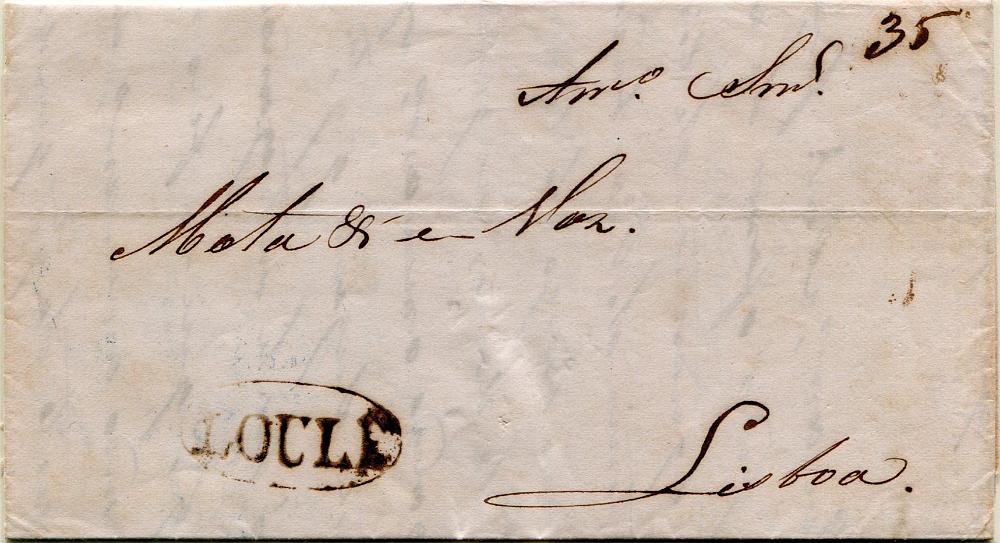 35
Amo. Snrs.
Mata & e Vaz.
LOULÉ
Lisboa.